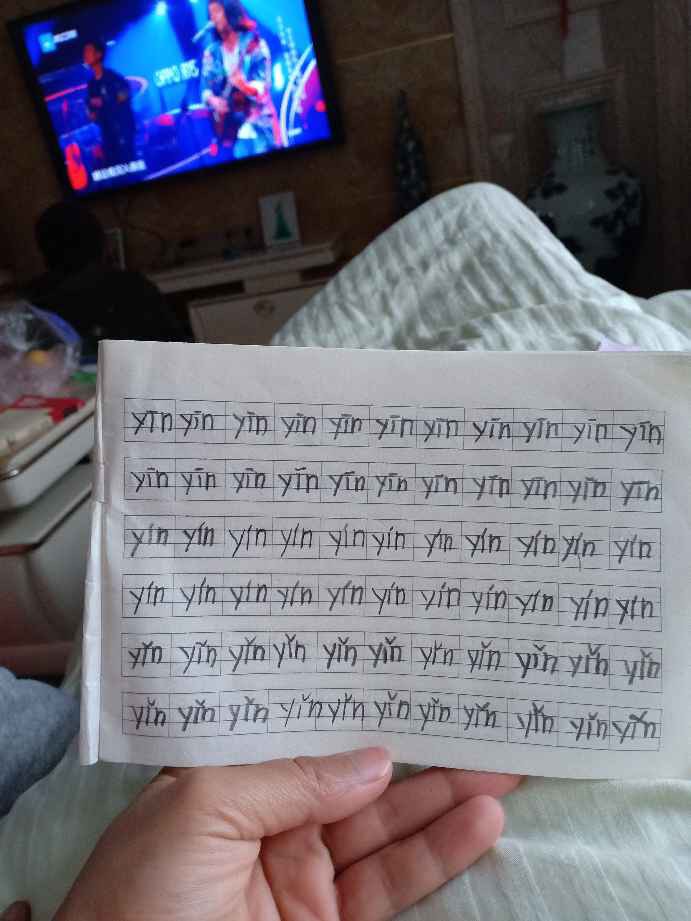 yīn yīn yīn yīn yīn yīn yīn yīn yīn yīn yīn
yīn yīn yīn yīn yīn yīn yīn yīn yīn yīn yīn
yín yín yín yín yín yín yín yín yín yín yín
yín yín yín yín yín yín yín yín yín yín yín
yǐn yǐn yǐn yǐn yǐn yǐn yǐn yǐn yǐn yǐn yǐn
yǐn yǐn yǐn yǐn yǐn yǐn yǐn yǐn yǐn yǐn yǐn